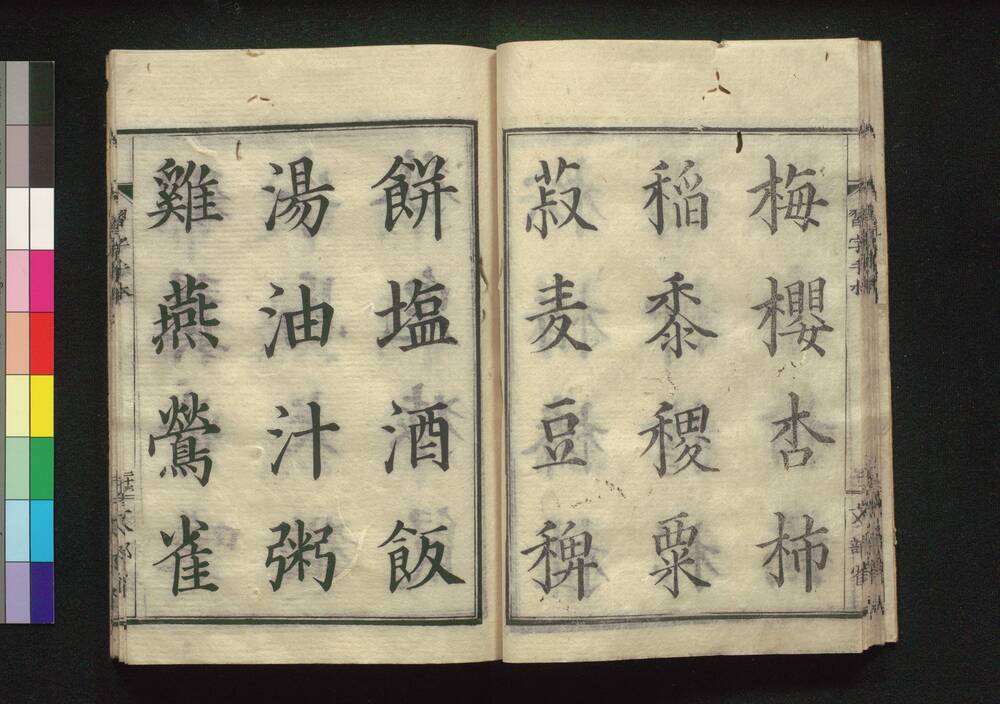 梅櫻杏柿
稲黍稷粟
菽麦豆稗
餅塩酒飯
湯油汁粥
雞燕鶯雀